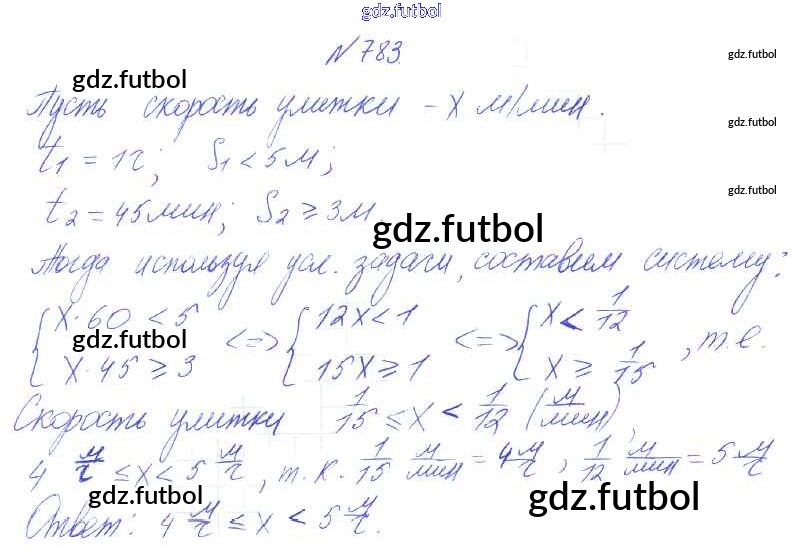 gdz.futbol
N 783.
gdz.futbol
gdz.futbol
Пусть скорость улитки – x м/мин.
gdz.futbol
t₁ = 1ч; S₁ < 5м;
gdz.futbol
t₂ = 45мин; S₂ ≥ 3м.
gdz.futbol
Тогда используя усл. задачи, составим систему:
{ x·60 < 5 <=> { 12x < 1 <=> { x < 1/12
gdz.futbol
x·45 ≥ 3 15x ≥ 1 x ≥ 1/15 , т.е.
Скорость улитки 1/15 ≤ x < 1/12 (м/мин),
4 м/ч ≤ x < 5 м/ч, т.к. 1/15 м/мин = 4 м/ч, 1/12 м/мин = 5 м/ч
gdz.futbol
gdz.futbol
Ответ: 4 м/ч ≤ x < 5 м/ч.